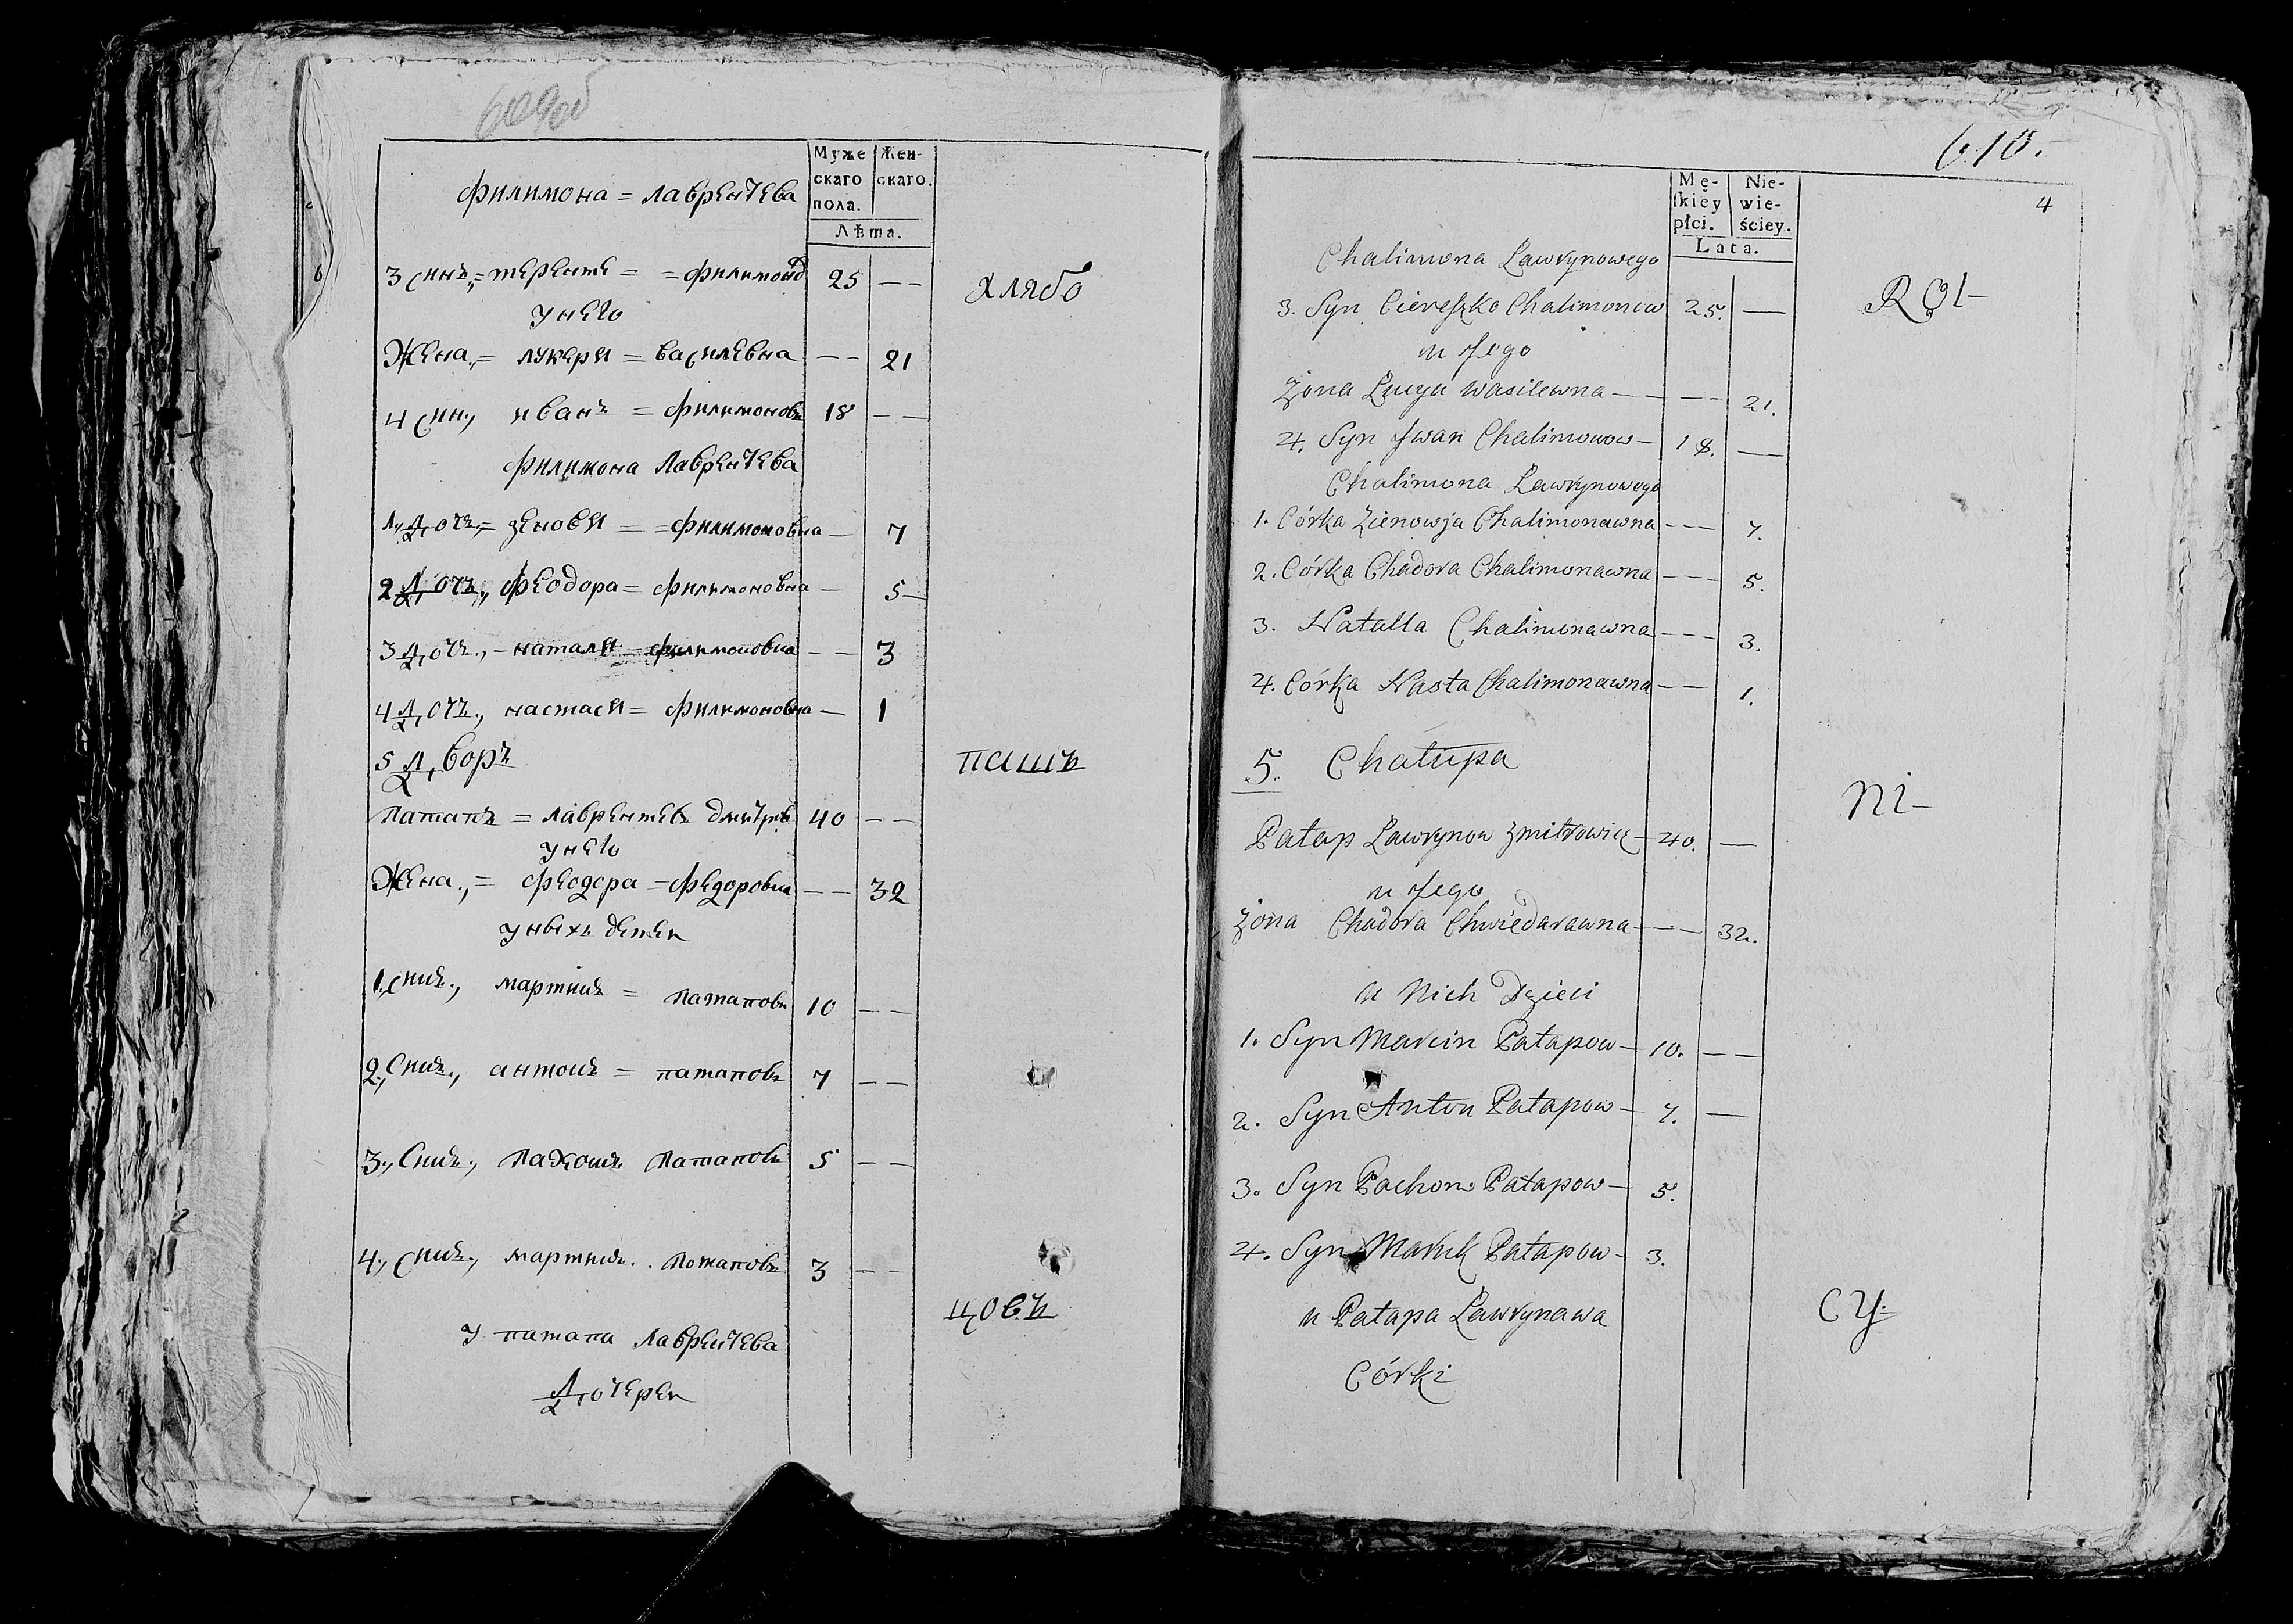 609об
Муже
скаго
пола.
Жен-
скаго.
Лѣта.
филимона = лаврентева
3 синъ., = терентe = = филимонов 25 — —
хлябо
унего
Жена., = лукеря = василевна — — 21
4 син., иванъ = филимоновъ 18 — —
филимона лаврентева
1., дочъ., = зеновия = = филимоновна — 7
2 дочъ., феодора = филимоновна — 5 —
3 дочъ., — наталя — филимоновна — — 3
4 дочъ., настася = филимоновна — 1
5 дворъ
пашъ
патапъ = лаврентевъ 40 — —
унего
Жена., = феодора = федоровна — — 32
уныхъ детеи
1., синъ., мартинъ = патаповъ 10 — —
2., синъ., антонъ = патаповъ 7 — —
3., Синъ., пахомъ патаповъ 5 — —
4., синъ., мартинъ . . потаповъ 3 — —
цовъ
у патапа лаврентева
дотереи
610.
4
Mę-
ſkiey
płci.
Nie-
wie-
ściey.
Lata.
Chalimona Ławrynowego
Rol-
3. Syn Cereſzko Chalimonow 25. —
u Jego
Żona Łucya Wasilewna — — — 21.
4. Syn Jwan Chalimonow — 18. —
Chalimona Ławrynowego
1. Córka Zienowja Chalimonawna — — — 7.
2. Córka Chadora Chalimonawna — — — 5.
3. Natalla Chalimonawna — — — 3.
4. Córka Nasta Chalimonawna — — 1.
5. Chałupa
ni-
Patap Ławrynow Zmitrowicz — 40. —
u Jego
Żona Chadora Chwiedarawna — — — 32.
u Nich Dzieci
1. Syn Marcin Patapow — 10. — —
2. Syn Anton Patapow — 7. —
3. Syn Pachom Patapow — 5.
4. Syn Patapow — 3.
cy-
u Patapa Ławrynawa
Córki